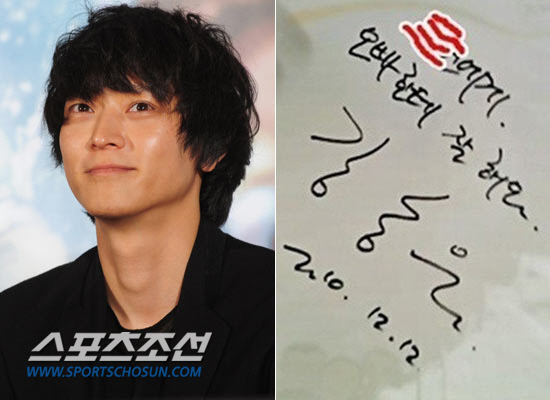 스포츠조선
WWW.SPORTSCHOSUN.COM
에게.
오빠한테 잘 해요
2010. 12. 12